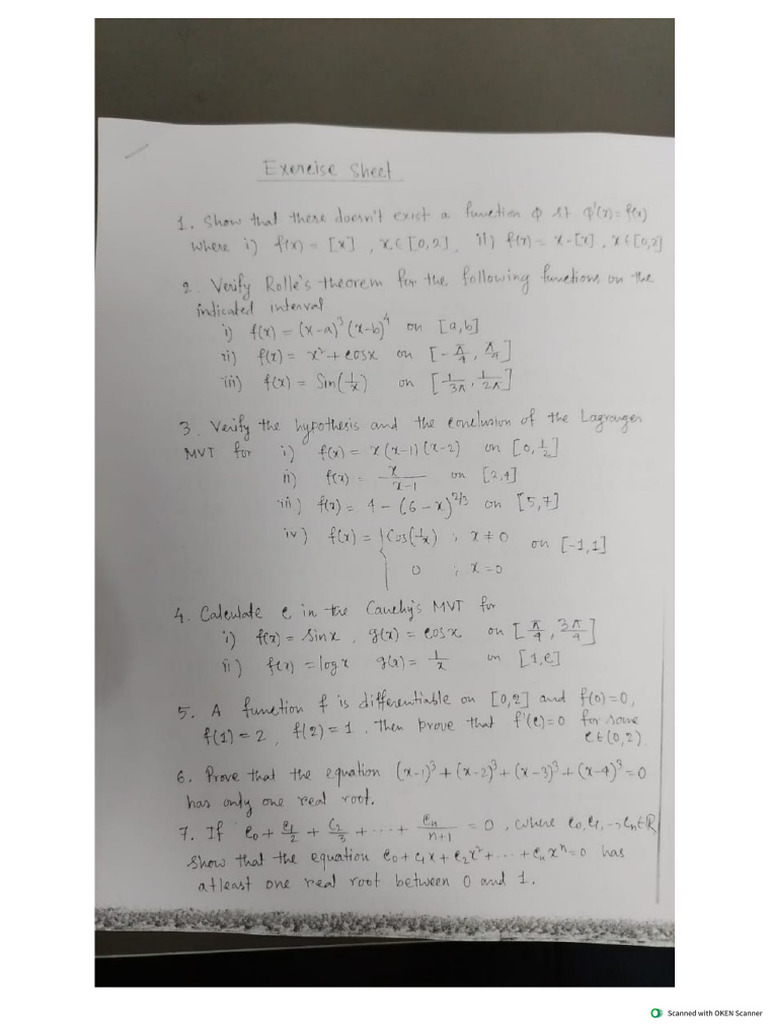 Exercise Sheet
1. Show that there doesn't exist a function φ st φ'(x) = f(x)
where i) f(x) = [x] , x ∈ [0,2], ii) f(x) = x-[x], x ∈ [0,2]
2. Verify Rolle's theorem for the following functions on the
indicated interval
i) f(x) = (x-a)³ (x-b)⁴ on [a,b]
ii) f(x) = x² + cosx on [-π/4, π/4]
iii) f(x) = Sin(1/x) on [1/3π, 1/2π]
3. Verify the hypothesis and the conclusion of the Lagranges
MVT for i) f(x) = x(x-1)(x-2) on [0, 1/2]
ii) f(x) = x/x-1 on [2,4]
iii) f(x) = 4 - (6-x)^2/3 on [5,7]
iv) f(x) = { Cos(1/x) ; x ≠ 0 on [-1,1]
0 ; x = 0
4. Calculate c in the Cauchy's MVT for
i) f(x) = sinx, g(x) = cosx on [π/4, 3π/4]
ii) f(x) = logx g(x) = 1/x on [1,e]
5. A function f is differentiable on [0,2] and f(0)=0,
f(1) = 2, f(2) = 1. Then prove that f'(c)=0 for some
c ∈ (0,2).
6. Prove that the equation (x-1)³ + (x-2)³ + (x-3)³ + (x-4)³ = 0
has only one real root.
7. If c₀ + c₁/2 + c₂/3 + ... + cₙ/n+1 = 0, where c₀, c₁, -, cₙ ∈ ℝ
show that the equation c₀ + c₁x + c₂x² + ... + cₙxⁿ = 0 has
atleast one real root between 0 and 1.
Scanned with OKEN Scanner